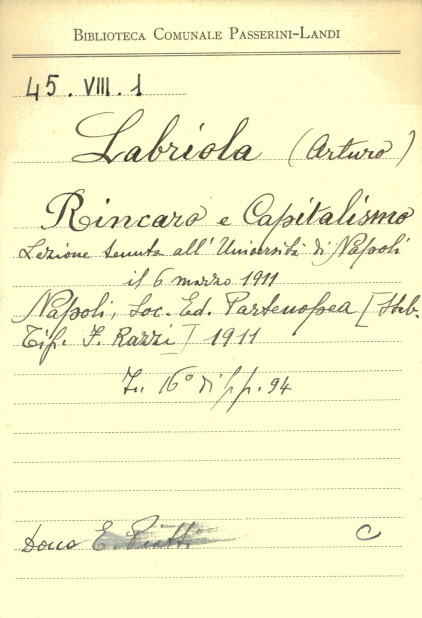 BIBLIOTECA COMUNALE PASSERINI-LANDI
45. VIII. 1
Labriola (Arturo)
Rincaro e Capitalismo
Lezione tenuta all'Università di Napoli
il 6 marzo 1911
Napoli, Soc. Ed. Partenopea [Stab.
Tip. F. Razzi] 1911
In 16° di pp. 94
Dono E. Piatti C